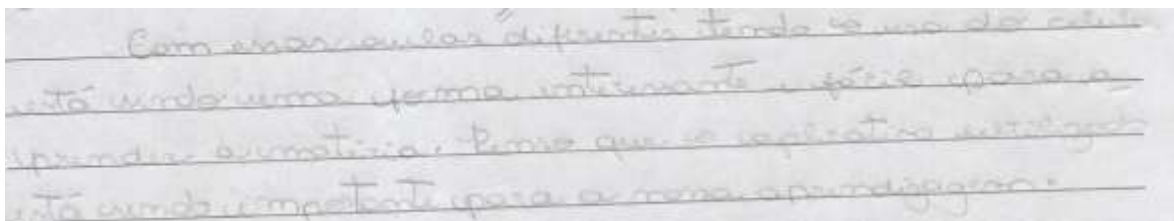 Com essas aulas diferentes tendo o uso do celul
está sendo uma forma interessante e fácil para a
prender a matéria. Penso que o aplicativo utilizado
está sendo importante para a nossa aprendizagem.